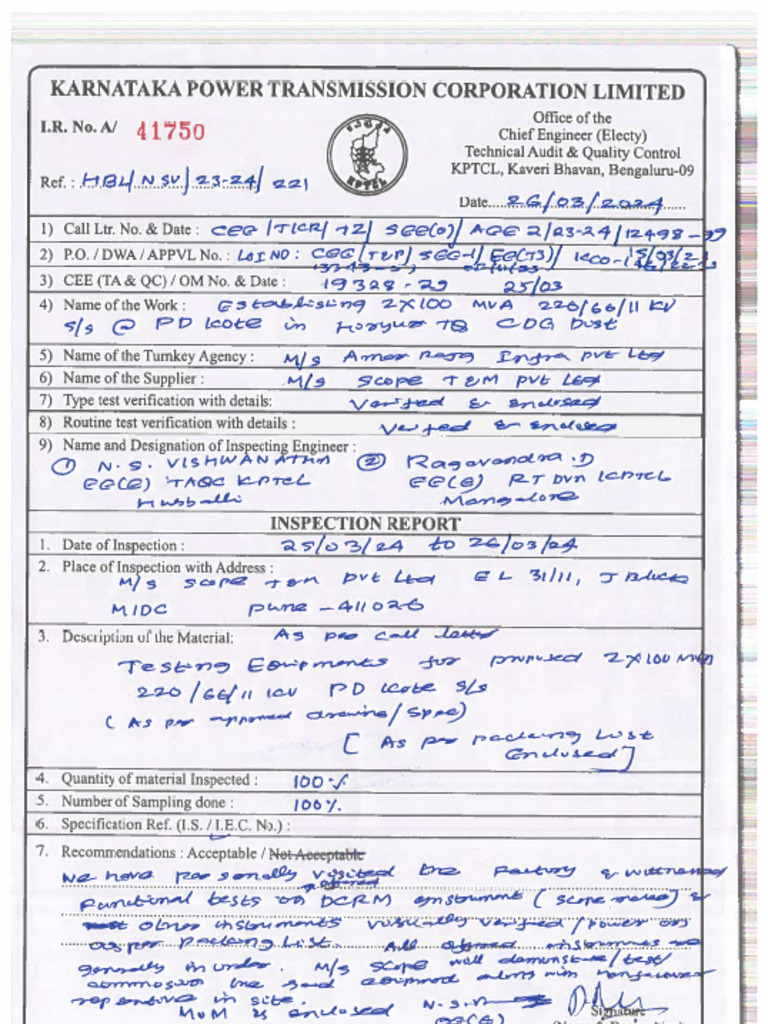 KARNATAKA POWER TRANSMISSION CORPORATION LIMITED
I.R. No. A/ 41750
KPTCL
Office of the
Chief Engineer (Electy)
Technical Audit & Quality Control
KPTCL, Kaveri Bhavan, Bengaluru-09
Ref. : HBL/NSV/23-24/221
Date 26/03/2024
1) Call Ltr. No. & Date : CEE/TICR/72/SEE(O)/AEE 2/23-24/12498-99
2) P.O. / DWA / APPVL No. : LOI NO: CEE/T&P/SEE-1/EE(T3)/KCO-
3) CEE (TA & QC) / OM No. & Date : 19328-29 25/03
4) Name of the Work : Establishing 2X100 MVA 220/66/11 KV
S/s @ PD Kote in Hiriyur TQ CDG Dist
5) Name of the Turnkey Agency : M/s Amar Raja Infra Pvt Ltd
6) Name of the Supplier : M/s Scope T&M Pvt Ltd
7) Type test verification with details: Verified & enclosed
8) Routine test verification with details : Verified & enclosed
9) Name and Designation of Inspecting Engineer :
① N. S. VISHWANATHA ② Ragavendra.D
EE(E) TAQC KPTCL EE(E) RT DVN KPTCL
Hubballi Mangalore
INSPECTION REPORT
1. Date of Inspection : 25/03/24 to 26/03/24
2. Place of Inspection with Address :
M/s Scope T&M Pvt Ltd EL 31/11, J Block
MIDC Pune - 411026
3. Description of the Material: As per call letter
Testing Equipments for proposed 2X100 MVA
220/66/11 KV PD Kote S/s
(As per approved drawing/Spec)
[As per packing List
Enclosed]
4. Quantity of material Inspected : 100%
5. Number of Sampling done : 100%
6. Specification Ref. (I.S. / I.E.C. No.) :
7. Recommendations : Acceptable / Not Acceptable
We have personally visited the factory & witnessed
offered
functional tests on DCRM instrument (Scope make) &
other instruments visually verified/power on
as per packing List. All offered instruments
generally in order. M/s Scope will demonstrate/test/
commission the said equipment along with
in site.
MoM is enclosed N.S.
Signature
EE(E)